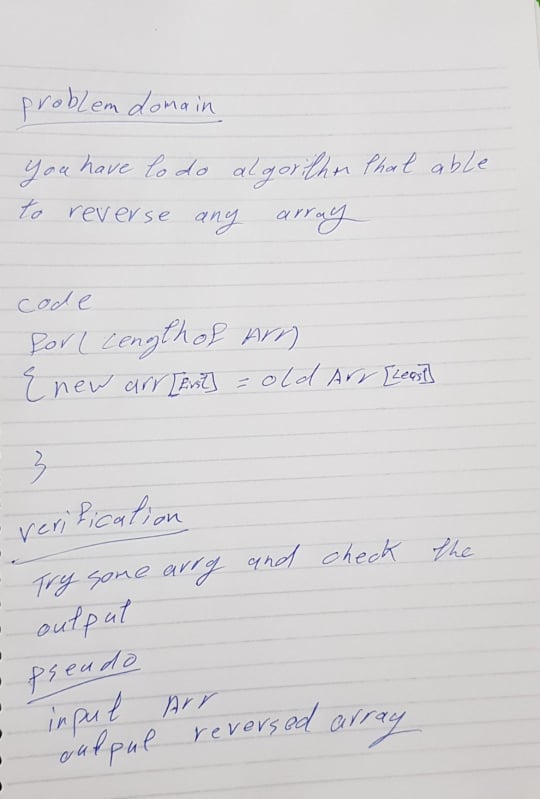 problem domain
you have to do algorithm that able
to reverse any array
code
for( Length of Arr)
{ new arr [First] = old Arr [Least]
}
verification
Try some arry and check the
output
pseudo
input Arr
output reversed array